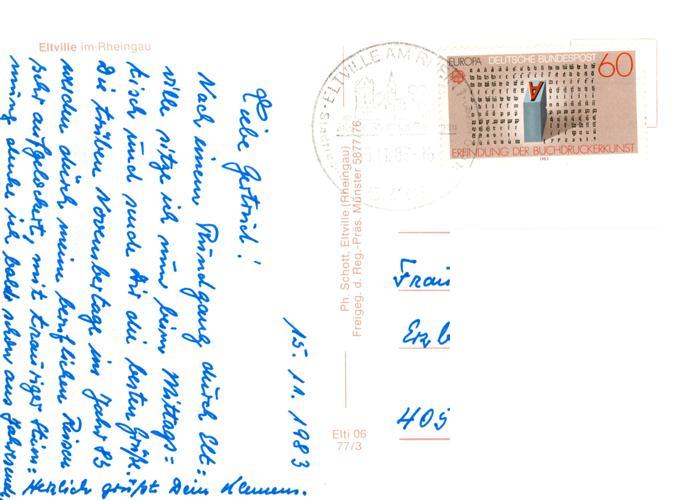 Eltville im Rheingau
15. 11. 1983
Liebe Gertrud!
Nach einem Rundgang durch Elt=
ville sitze ich nun beim Mittags=
tisch und sende Dir die besten Grüße.
Die trüben Novembertage im Jahr 83
werden durch meine beruflichen Reisen
sehr aufgelockert, mit trauriger Stim=
mung denke ich bald schon ans Jahresende.
Herzlich grüßt Dein Klemens.
Ph. Schott, Eltville (Rheingau)
Freigeg. d. Reg.-Präs. Münster 5877/76
Elti 06
77/3
ELTVILLE AM RHEIN
EUROPA DEUTSCHE BUNDESPOST 60
A
ERFINDUNG DER BUCHDRUCKERKUNST
1983
Frau
Erzb
405